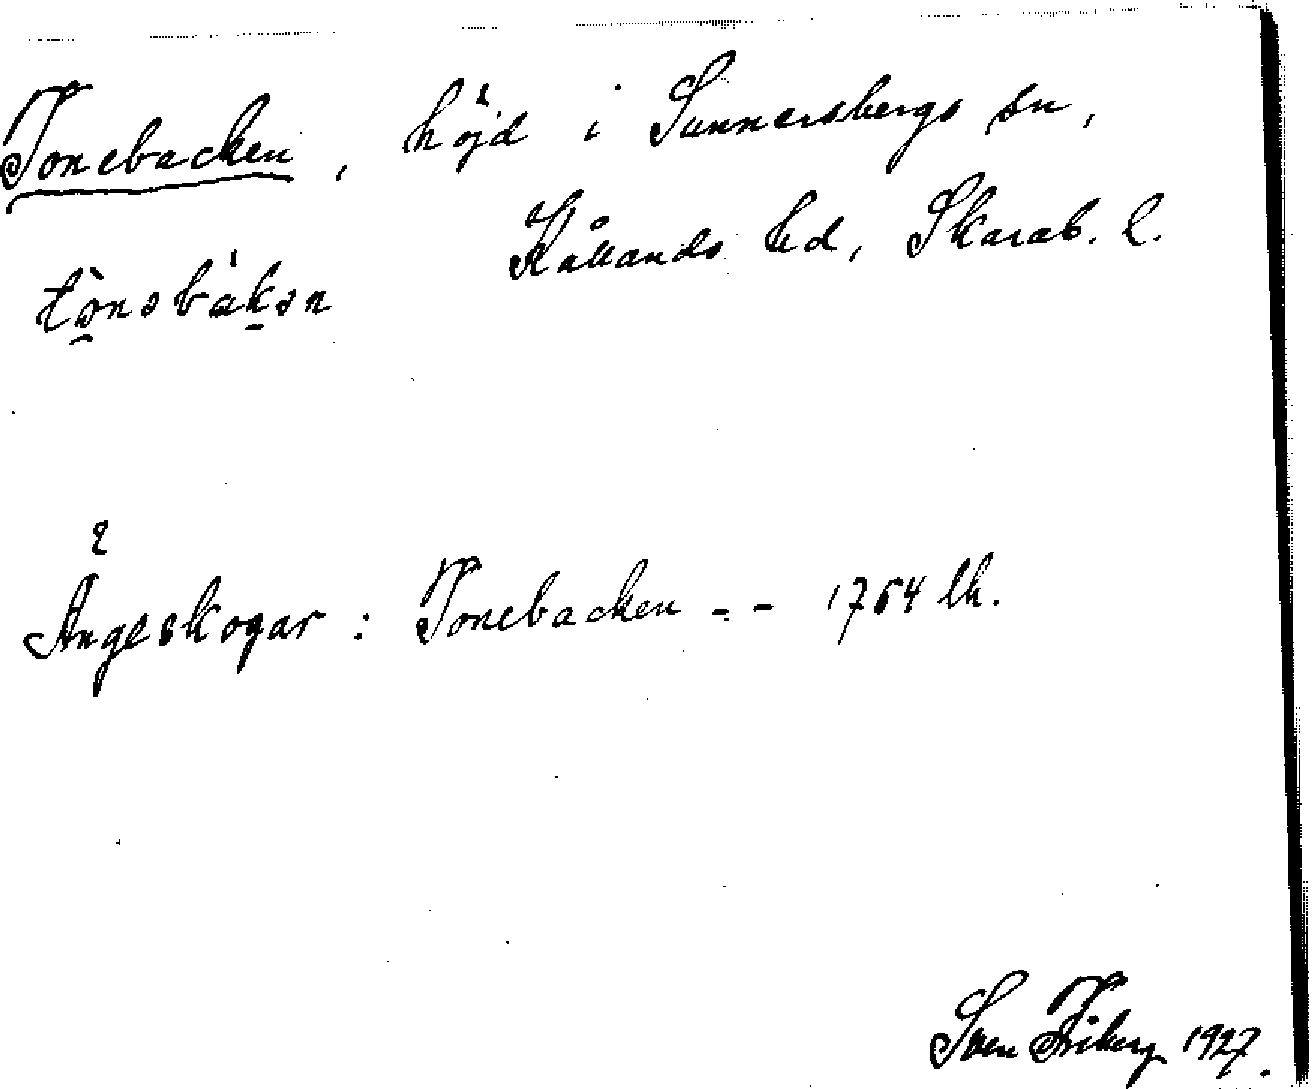 Tonebacken, höjd i Sunnersbergs sn,
Kållands hd, Skarab. l.
Ängeskogar : Tonebacken - - 1764 lh.
Sven Friberg 1927.